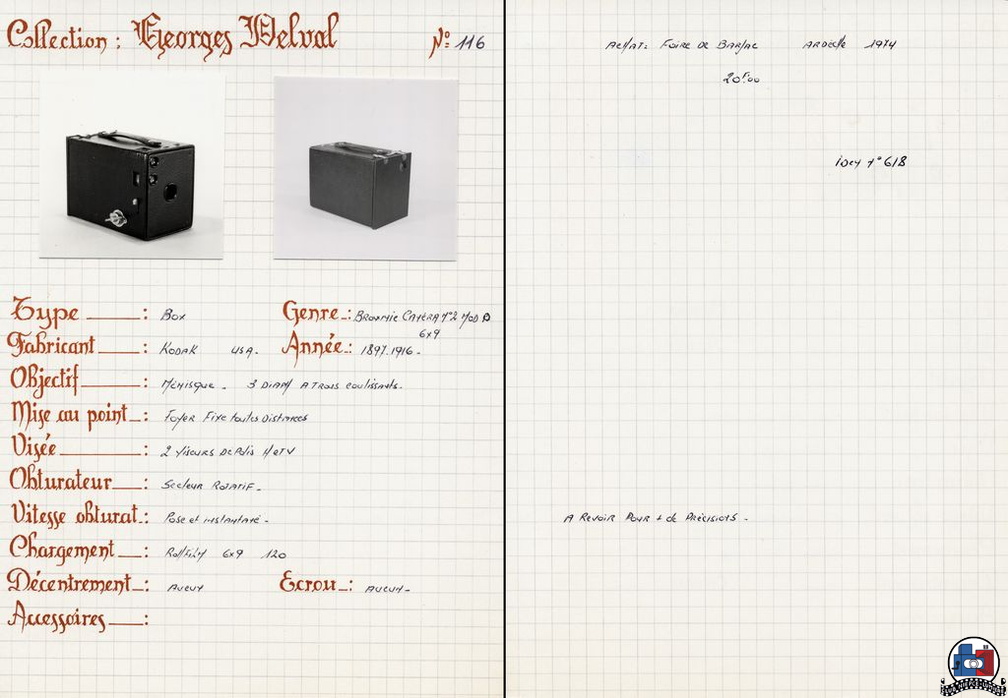 Collection : Georges Delval Nº 116
Type : Box Genre : Brownie Caméra n°2 Mod D
6x9
Fabricant : Kodak USA. Année : 1897.1916.
Objectif : Ménisque. 3 Diam A Trous coulissants.
Mise au point : Foyer Fixe toutes Distances
Visée : 2 Viseurs Dépolis H et V
Obturateur : Secteur Rotatif.
Vitesse obturat. : Pose et instantané.
Chargement : Rollfilm 6x9 120
Décentrement : Aucun Ecrou : Aucun.
Accessoires :
Achat: Foire de Barjac Ardèche 1974
20F00
n° 618
A Revoir Pour + de Précisions.